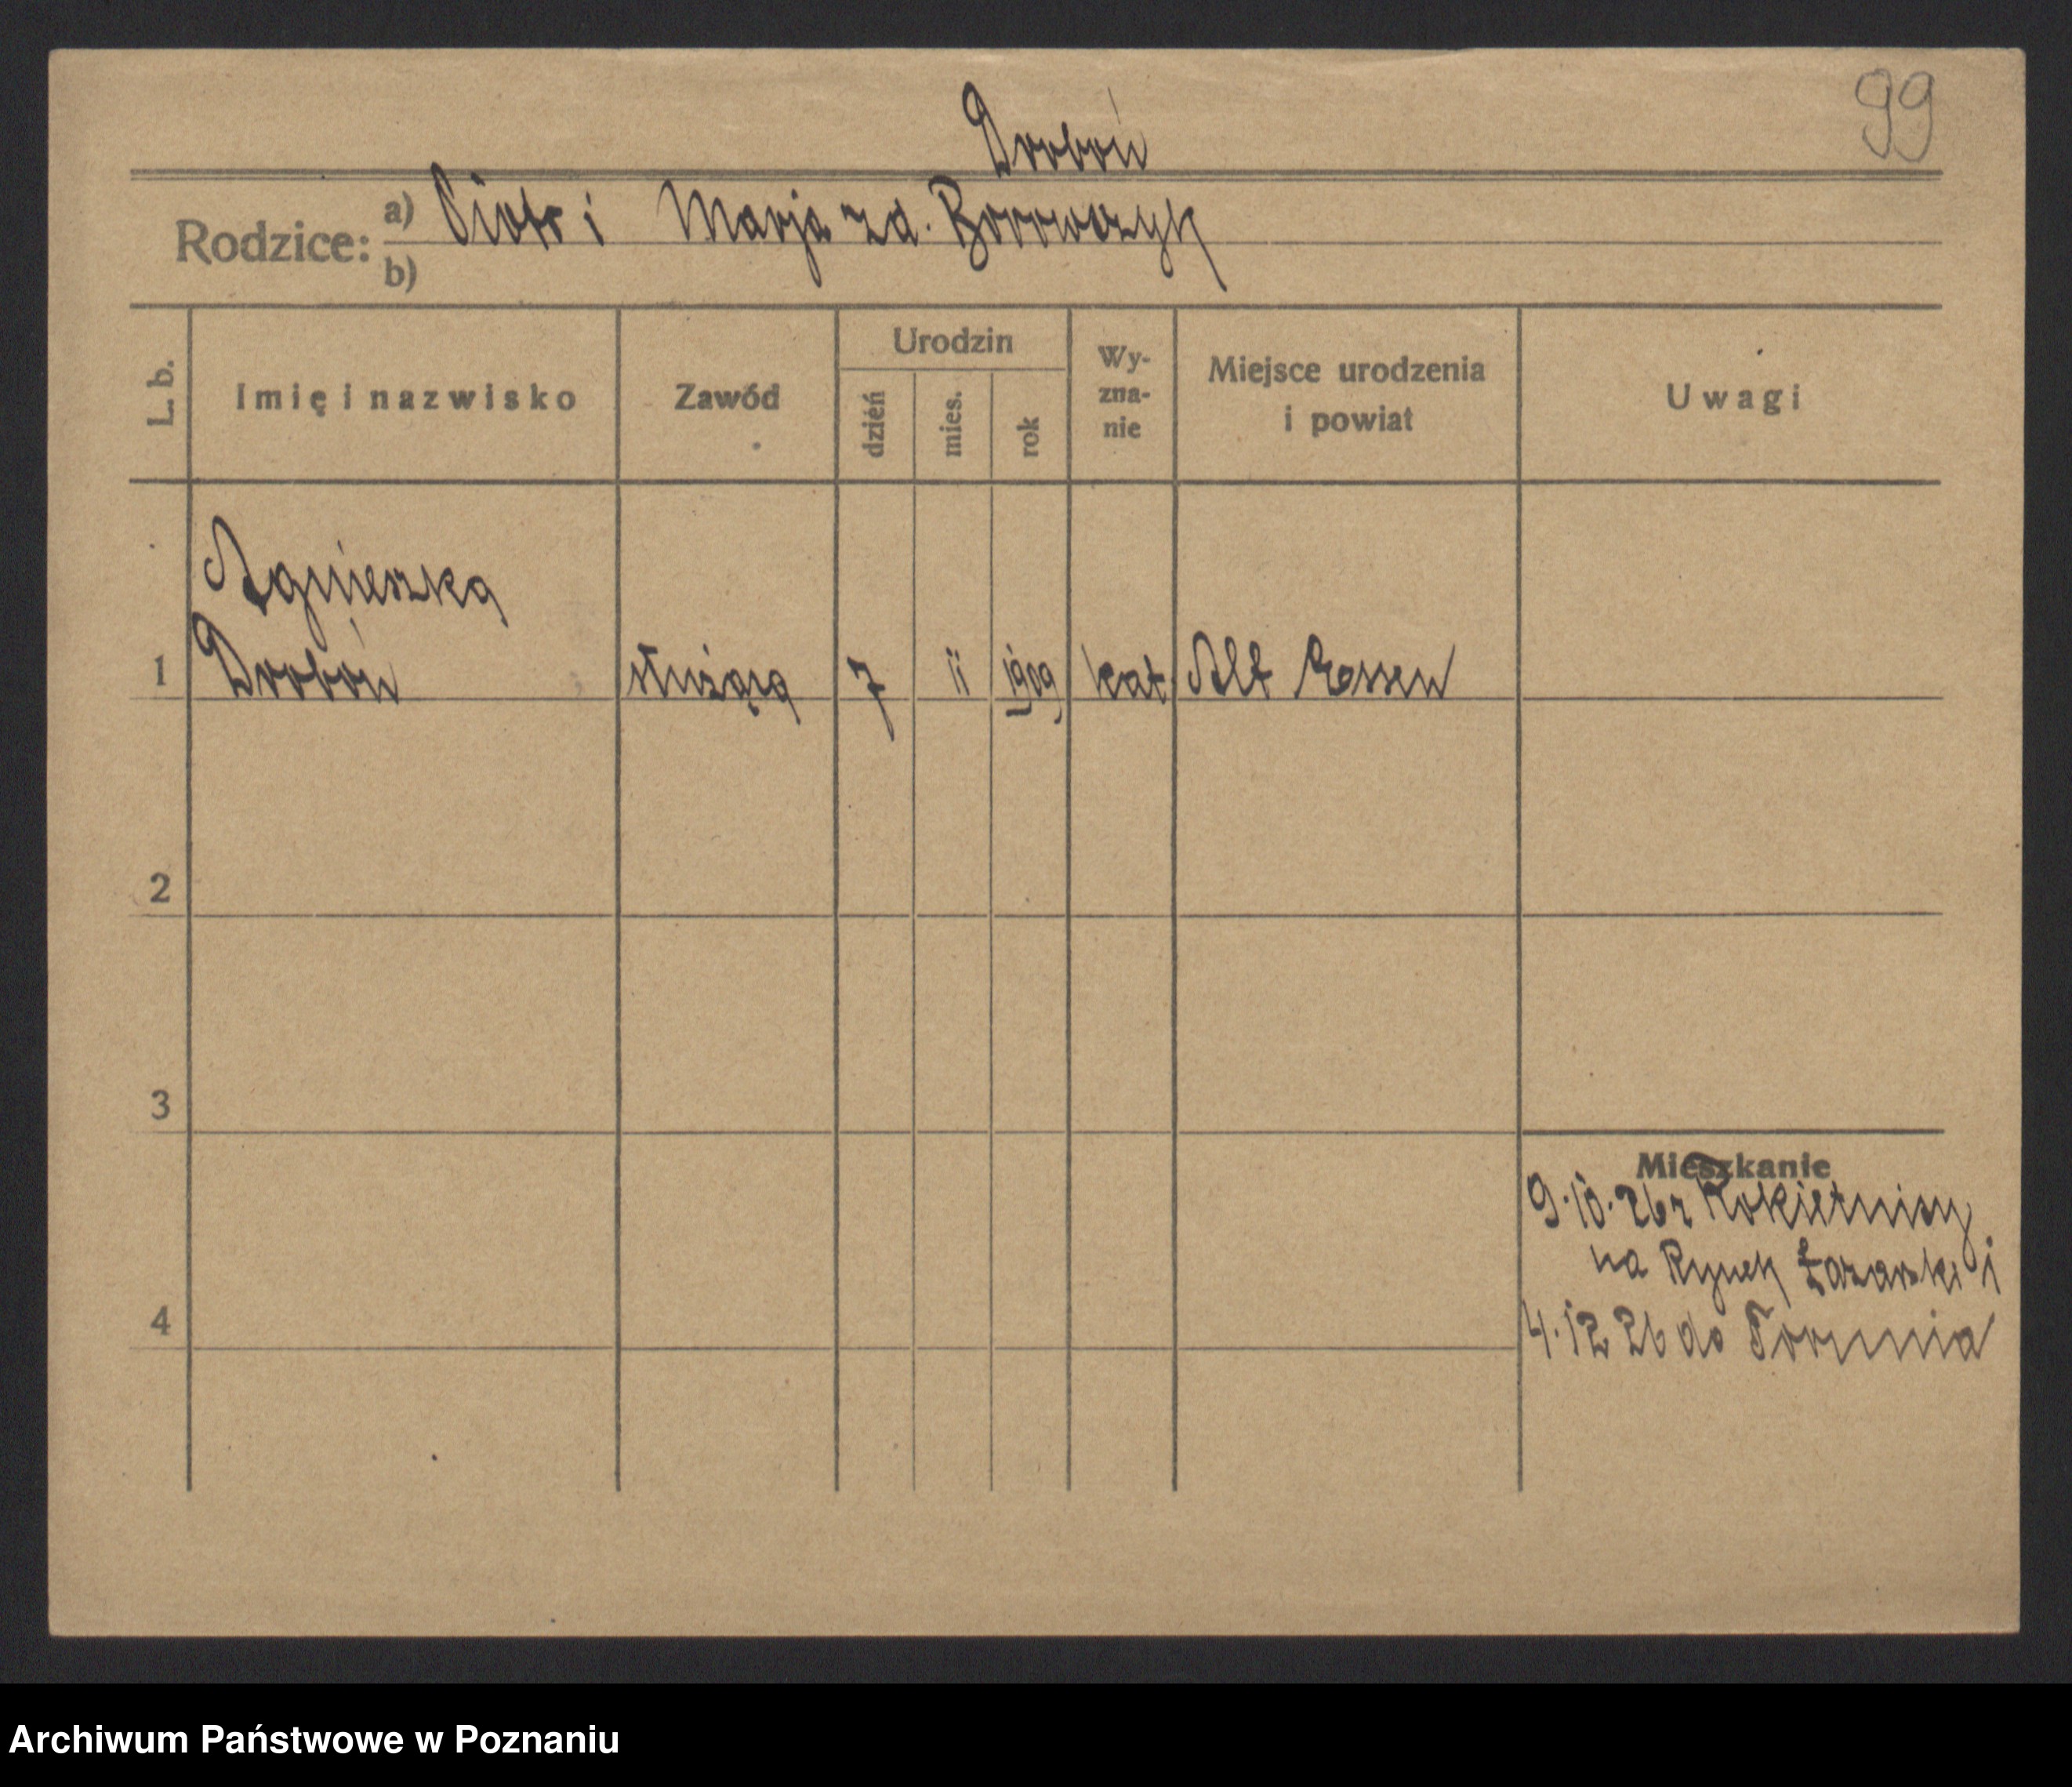 99
Droboń
Rodzice: a) Piotr i Marja zd. Borowczyk
b)
L. b.
Imię i nazwisko
Zawód
Urodzin
dzień
mies.
rok
Wy-
zna-
nie
Miejsce urodzenia
i powiat
Uwagi
Agnieszka
1 Droboń służąca 7 ii 1909 kat. Alt Essen
2
3
Mieszkanie
9.10.26 z Rokietnicy
na Rynek Łazarski
4
4.12 26 do Torunia
Archiwum Państwowe w Poznaniu